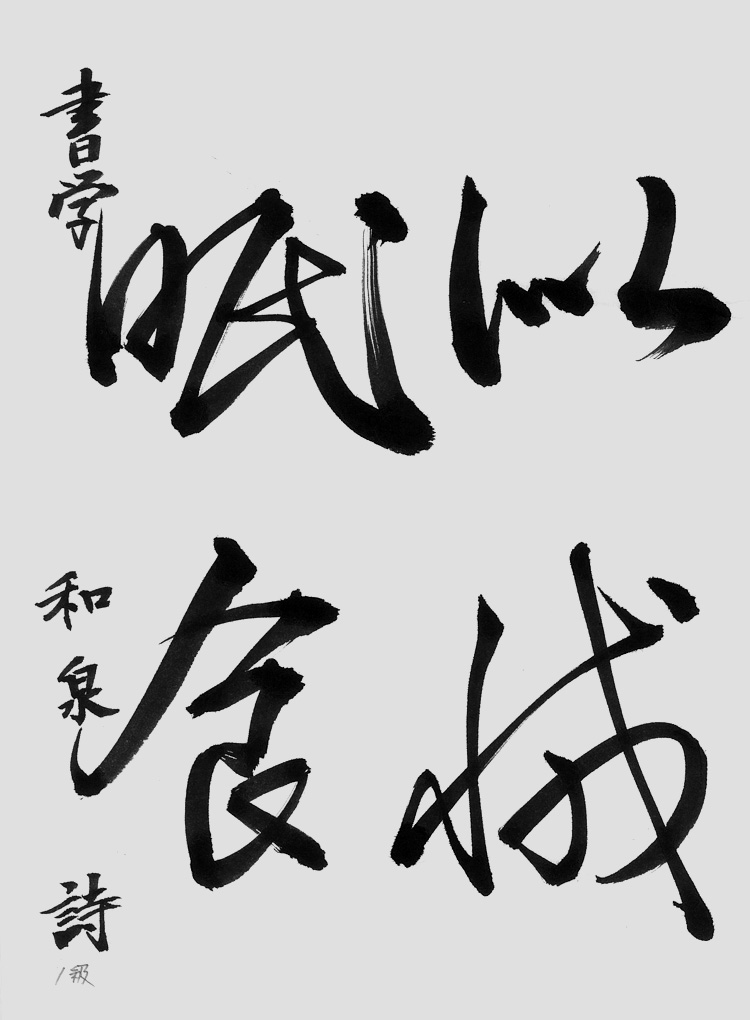 以
眠食
書学 和泉 詩
1級